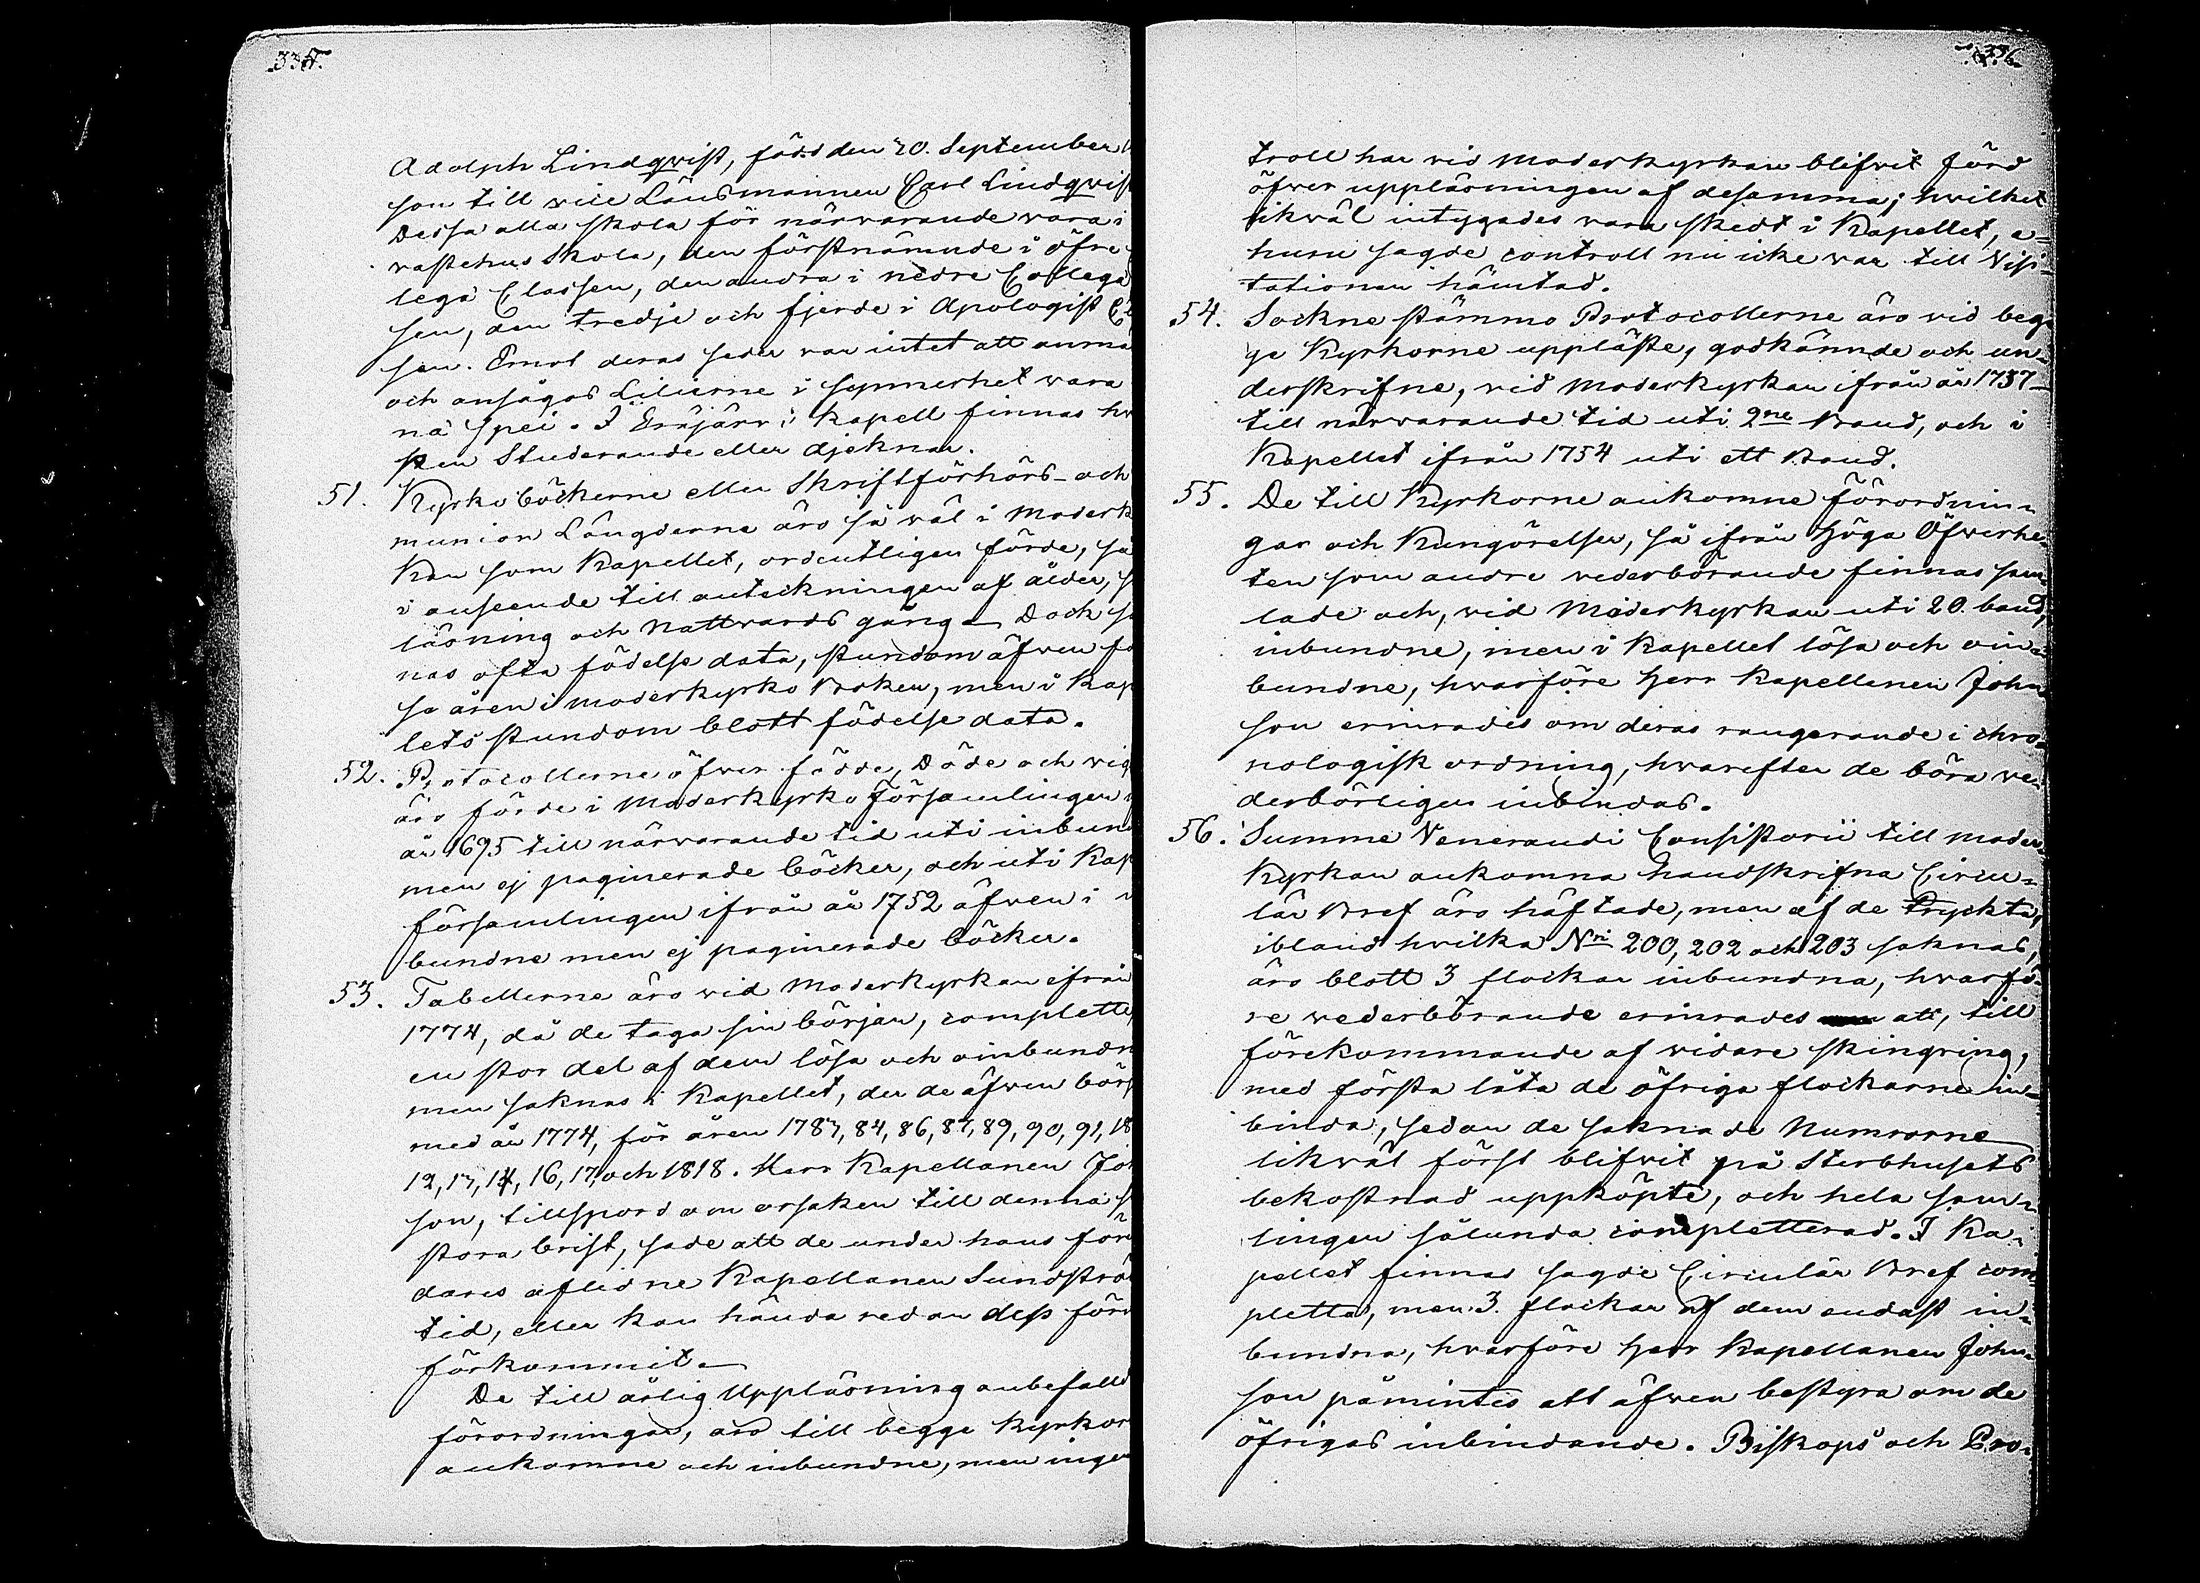 335.
Adolph Lindqvist, född den 20. September
son till vice Länsmannen Carl Lindqvis
Dessa alla skola för närvarande vara i
vastehus Skola, den förstnämnde i öfre
lega Classen, den andra i nedre Collega
sen, den tredje och fjerde i Apologist Cl
sen. Emot deras seder var intet att anma
och ansågos Lilierne i synnerhet vara
nä spei. I Eräjärvi Kapell finnas hv
ken Studerande eller djeknar.
51. Kyrko böckerne eller Skriftförhörs- och
munion Längderne äro så väl i Moderk
kan som Kapellet, ordentligen förde, så
i anseende till anteckningen af ålder, s
läsning och Nattvards gång. Dock s
nas ofta födelse data, stundom äfven fö
se åren i moderkyrko Boken, men i Kap
lets stundom blott födelse data.
52. Protocollerne öfver födde, Döde och vig
äro förde i Moderkyrko församlingen
år 1695 till närvarande tid uti inbun
men ej paginerade böcker, och uti Kap
församlingen ifrån år 1752 äfven i
bundne men ej paginerade böcker.
53. Tabellerne äro vid Moderkyrkan ifrån
1774, då de taga sin början, complette
en stor del af dem lösa och oinbundn
men saknas i Kapellet, der de äfven börj
med år 1774, för åren 1783, 84, 86, 87, 89, 90, 91, 18
12, 13, 14, 16, 17, och 1818. Herr Kapellanen Joh
son, tillspord om orsaken till denna s
stora brist, sade att de under hans för
dares aflidne Kapellanen Sundströ
tid, eller kan hända redan dess för
förkommit.
De till årlig Uppläsning anbefalld
förordningar, äro till begge Kyrkor
ankomne och inbundne, men ingen
336.
troll har vid Moderkyrkan blifvit förd
öfver uppläsningen af desamma; hvilket
likväl intygades vara skedt i Kapellet, e-
huru sagde controll nu icke var till Visi-
tationen hämtad.
54. Sockne stämmo Protocollerne äro vid beg-
ge Kyrkorne uppläste, godkännde och un-
derskrifne, vid Moderkyrkan ifrån år 1737
till närvarande tid uti 2ne Band, och i
Kapellet ifrån 1754 uti ett Band.
55. De till Kyrkorne ankomne förordnin-
gar och Kungörelser, så ifrån Höga Öfverhe-
ten som andre vederbörande finnas sam-
lade och, vid Moderkyrkan uti 20. band,
inbundne, men i Kapellet lösa och oin-
bundne, hvarföre Herr Kapellanen John-
son erinrades om deras rangerande i chro-
nologisk ordning, hvarefter de böra ve-
derbörligen inbindas.
56. Summe Venerandi Consistorii till moder-
kyrkan ankomna handskrifna Circu-
lär Bref äro häftade, men af de Tryckta,
ibland hvilka Nri 200, 202 och 203 saknas,
äro blott 3 flockar inbundna, hvarfö-
re vederbörande erinrades att, till
förekommande af vidare skingring,
med första låta de öfriga flockarne in-
binda, sedan de saknade Numrorne
likväl först blifvit på Sterbhusets
bekostnad uppköpte, och hela sam-
lingen sålunda completterad. I Ka-
pellet finnas sagde Circulär Bref com-
pletta, men 3. flockar af dem endast in-
bundna, hvarföre Herr Kapellanen John-
son påmintes att äfven bestyra om de
öfrigas inbindande. Biskops och Pro-